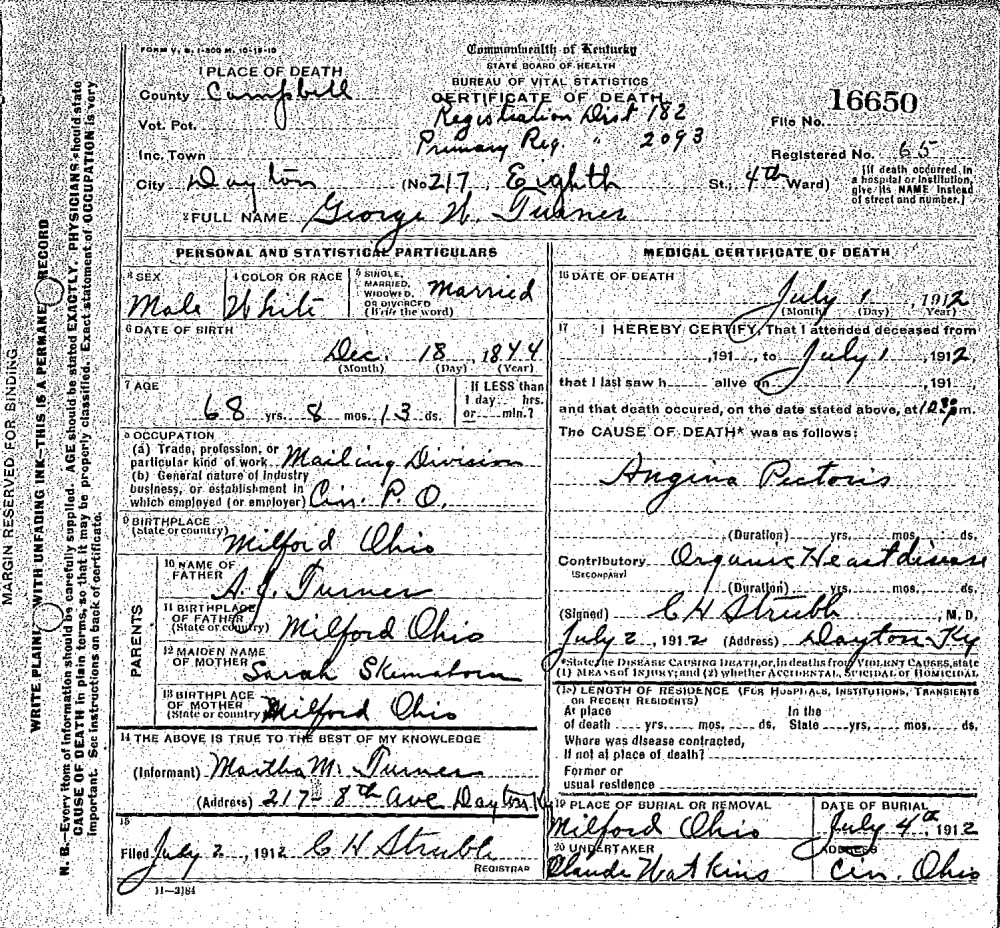 FORM V. S. 1-500 M. 10-18-10
Commonwealth of Kentucky
STATE BOARD OF HEALTH
BUREAU OF VITAL STATISTICS
CERTIFICATE OF DEATH
1 PLACE OF DEATH
County Campbell
Vot. Pct.
Inc. Town
Registration Dist 182
Primary Reg. " 2093
16650
File No.
Registered No. 65
City Dayton (No 217, Eighth St., 4th Ward)
[If death occurred in a hospital or institution, give its NAME instead of street and number.]
2 FULL NAME George W. Turner
PERSONAL AND STATISTICAL PARTICULARS
3 SEX Male
4 COLOR OR RACE White
5 SINGLE, MARRIED, WIDOWED, OR DIVORCED (Write the word) Married
6 DATE OF BIRTH
Dec. 18, 1844
(Month) (Day) (Year)
7 AGE
68 yrs. 8 mos. 13 ds.
If LESS than 1 day hrs. or min.?
8 OCCUPATION
(a) Trade, profession, or particular kind of work Mailing Division
(b) General nature of industry business, or establishment in which employed (or employer) Cin. P.O.
9 BIRTHPLACE (State or country) Milford Ohio
PARENTS
10 NAME OF FATHER A. J. Turner
11 BIRTHPLACE OF FATHER (State or country) Milford Ohio
12 MAIDEN NAME OF MOTHER Sarah
13 BIRTHPLACE OF MOTHER (State or country) Milford Ohio
14 THE ABOVE IS TRUE TO THE BEST OF MY KNOWLEDGE
(Informant) Martha M. Turner
(Address) 217- 8th Ave Dayton Ky
15
Filed July 2, 1912 C H Strubh
REGISTRAR
11-3184
MEDICAL CERTIFICATE OF DEATH
16 DATE OF DEATH
July 1, 1912
(Month) (Day) (Year)
17 I HEREBY CERTIFY, That I attended deceased from
, 191 , to July 1, 1912,
that I last saw h alive on , 191 ,
and that death occured, on the date stated above, at m.
The CAUSE OF DEATH* was as follows:
Angina Pectoris
(Duration) yrs. mos. ds.
Contributory Organic Heart disease
(SECONDARY)
(Duration) yrs. mos. ds.
(Signed) C H Strubh, M. D.
July 2, 1912 (Address) Dayton Ky
*State the DISEASE CAUSING DEATH, or, in deaths from VIOLENT CAUSES, state
(1) MEANS of INJURY; and (2) whether ACCIDENTAL, SUICIDAL or HOMICIDAL
(18) LENGTH OF RESIDENCE (FOR HOSPITALS, INSTITUTIONS, TRANSIENTS
OR RECENT RESIDENTS)
At place of death yrs. mos. ds. In the State yrs. mos. ds.
Where was disease contracted,
If not at place of death?
Former or
usual residence
19 PLACE OF BURIAL OR REMOVAL
Milford Ohio
DATE OF BURIAL
July 4th, 1912
20 UNDERTAKER
Claude Watkins
ADDRESS
Cin. Ohio
MARGIN RESERVED FOR BINDING
WRITE PLAINLY WITH UNFADING INK—THIS IS A PERMANENT RECORD
N. B.—Every item of information should be carefully supplied. AGE should be stated EXACTLY. PHYSICIANS should state
CAUSE OF DEATH in plain terms, so that it may be properly classified. Exact statement of OCCUPATION is very
important. See instructions on back of certificate.